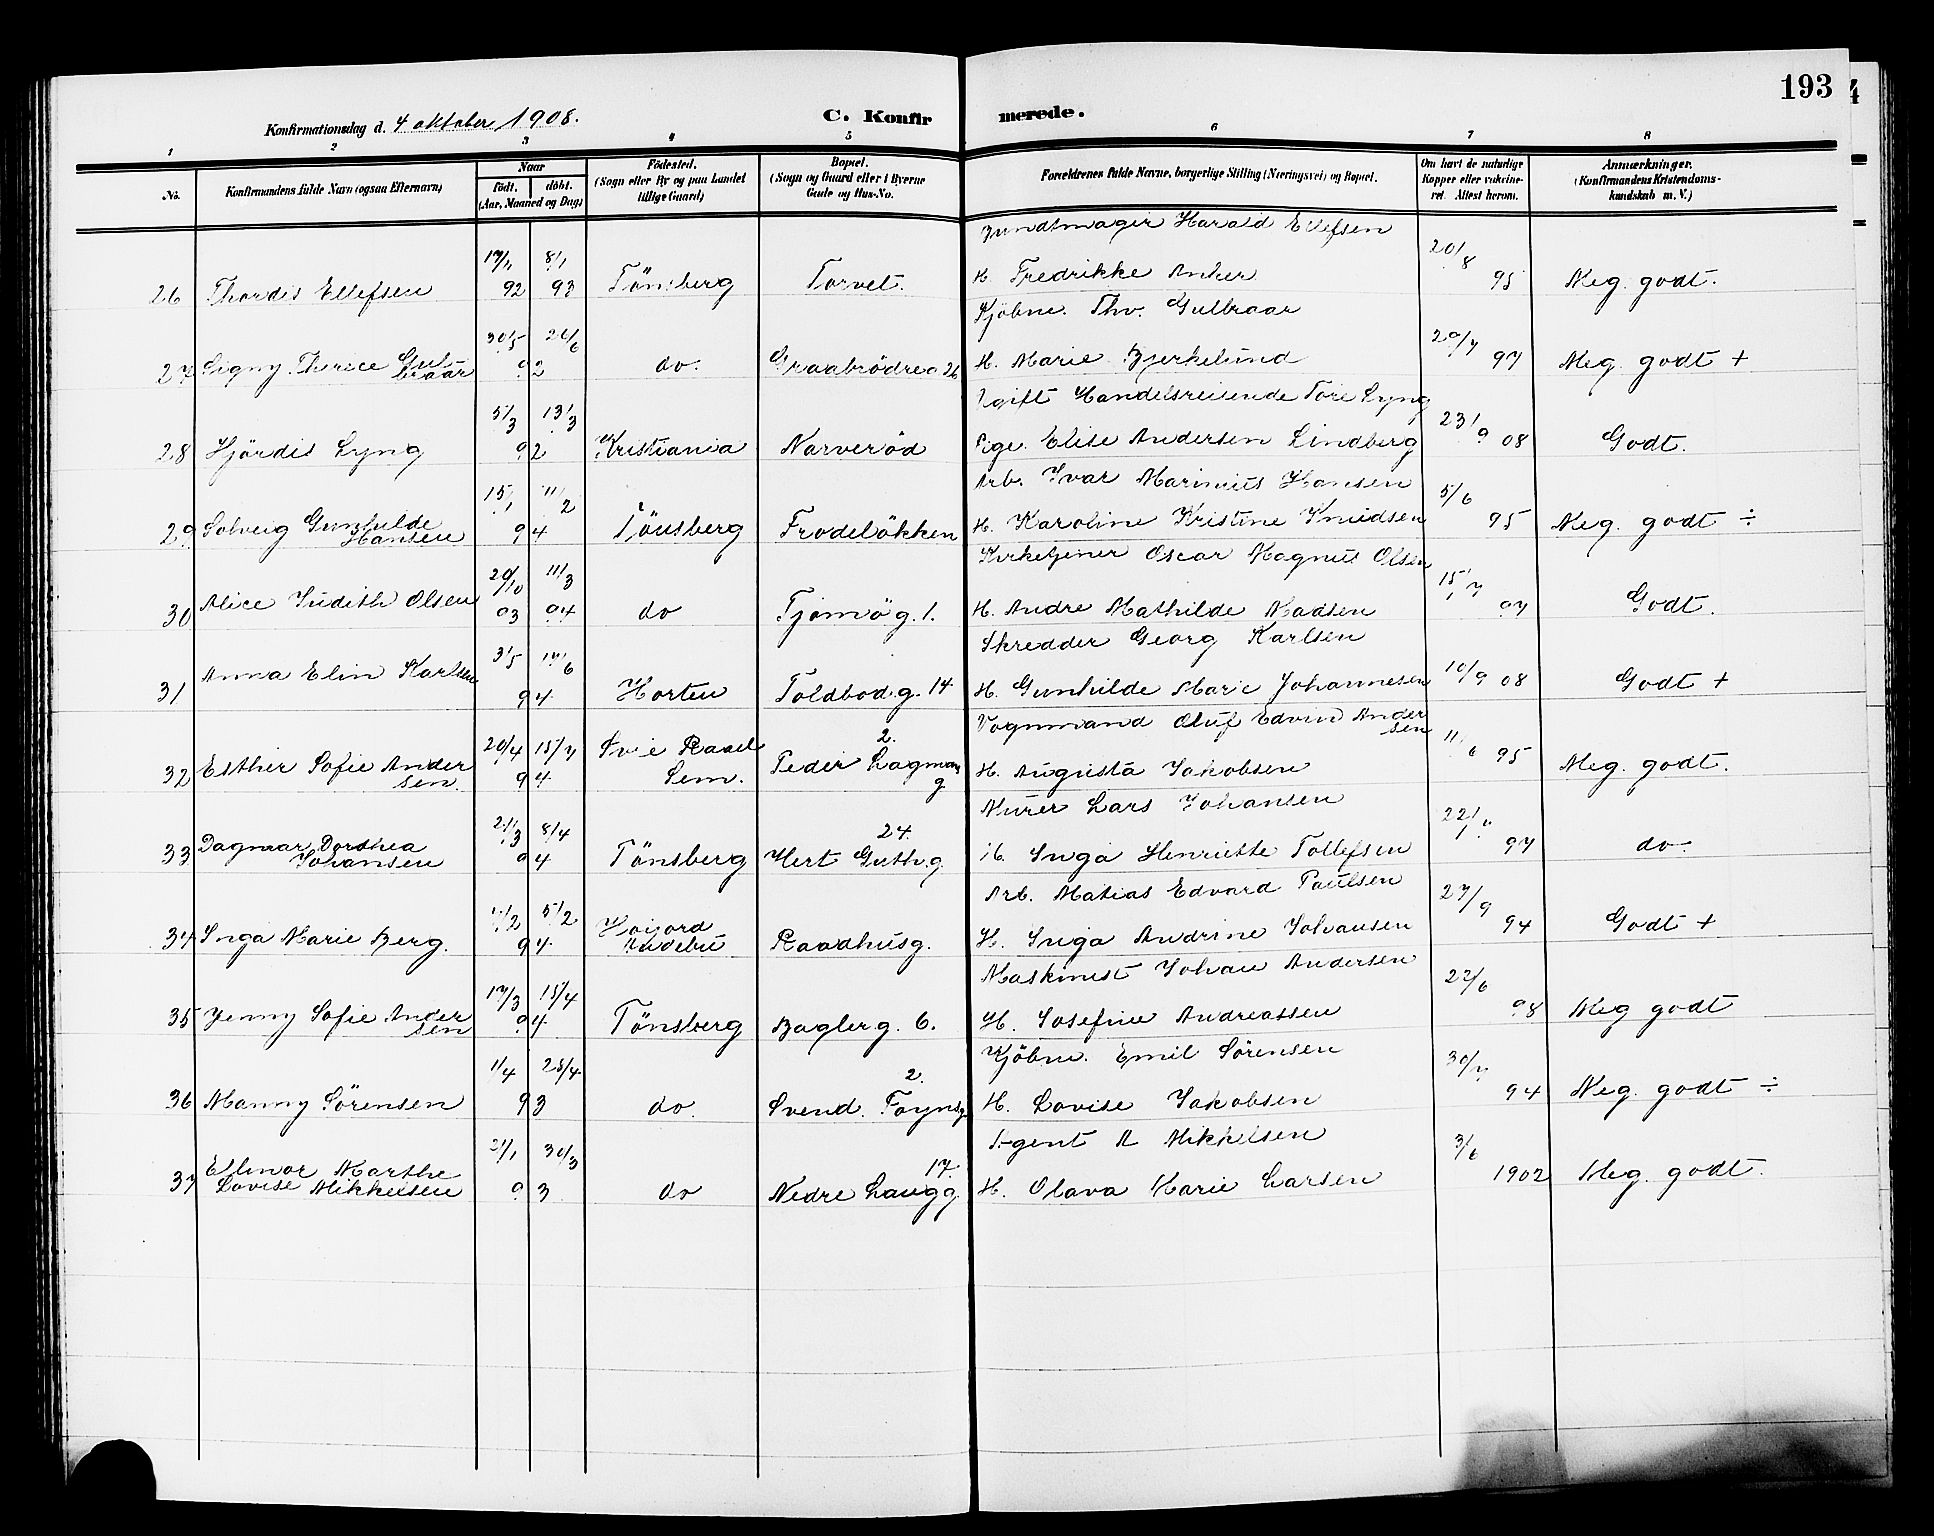 193
Konfirmationsdag d. 4 oktober 1908.
C. Konfir merede.
1 2 3 4 5 6 7 8
No.
Konfirmandens fulde Navn (ogsaa Efternavn)
Naar
Födt. döbt.
(Aar, Maaned og Dag)
Födested.
(Sogn eller By og paa Landet
tillige Gaard)
Bopæl.
(Sogn og Gaard eller i Byerne
Gade og Hus-No.
Forældrenes fulde Navne, borgerlige Stilling (Næringsvei) og Bopæl.
Om havt de naturlige
Kopper eller vaksine-
ret. Attest herom.
Anmærkninger.
(Konfirmandens Kristendoms-
kundskab m. V.)
Harald Ellefsen
26 Thordis Ellefsen 92 8/1 93 Tönsberg Torvet. Fredrikke Anker 20/8 95 Meg. godt.
Kjöbm. Thv. Gulbraar
27 Signy Therice Gul-
braar 30/5 26/6 92 do. Graabrödreg 26 H. Marie Bjerkelund 97 Meg. godt +
Ugift Handelsreisende Tore Lyng
28 Hjördis Lyng 5/3 13/3 92 Kristiania Narveröd Pige. Elise Andersen Lindberg 23/9 08 Godt.
Arb. Ivar Marinius Hansen
29 Solveig Gunhilde
Hansen 15/1 11/2 94 Tönsberg Frodelökken H. Karoline Kristine Knudsen 5/6 95 Meg. godt ÷
Kirketjener Oscar Magnus Olsen
30 Alice Judith Olsen 20/10 93 11/3 94 do Tjömög. 1. H. Andre Mathilde Madsen 15/7 97 Godt.
Skredder Georg Karlsen
31 Anna Elin Karlsen 3/5 17/6 94 Horten Toldbod.g. 14 H. Gunhilde Marie Johannesen 10/9 08 Godt +
Vognmand Oluf Edvin Ander
sen
32 Esther Sofie Ander
sen. 20/4 15/7 94 Sem. Peder Lagmans
g 2. H. Augusta Jakobsen 95 Meg. godt.
Murer Lars Johansen
33 Dagmar Dorthea
Johansen 21/3 8/4 94 Tönsberg Hert Guth.g. 24. H. Inga Henriette Tollefsen 97 do.
Arb. Matias Edvard Paulsen
34 Inga Marie Berg. 5/2 94 Raadhusg. H. Inga Andrine Johansen 27/9 94 Godt +
Maskinist Johan Andersen
35 Jenny Sofie Ander
sen 17/3 15/4 94 Tönsberg Bagler g. 6. H. Josefine Andreassen 22/6 98 Meg godt
Kjöbm. Emil Sörensen
36 Manny Sörensen 1/4 25/4 93 do. Svend. Foynsg 2. H. Lovise Jakobsen 30/7 94 Meg. godt ÷
Agent A Mikkelsen
37 Ellinor Marthe
Lovise Mikkelsen 30/3 93 do Nedre Langg. 17. H. Olava Marie Larsen 3/6 1902 Meg. godt.